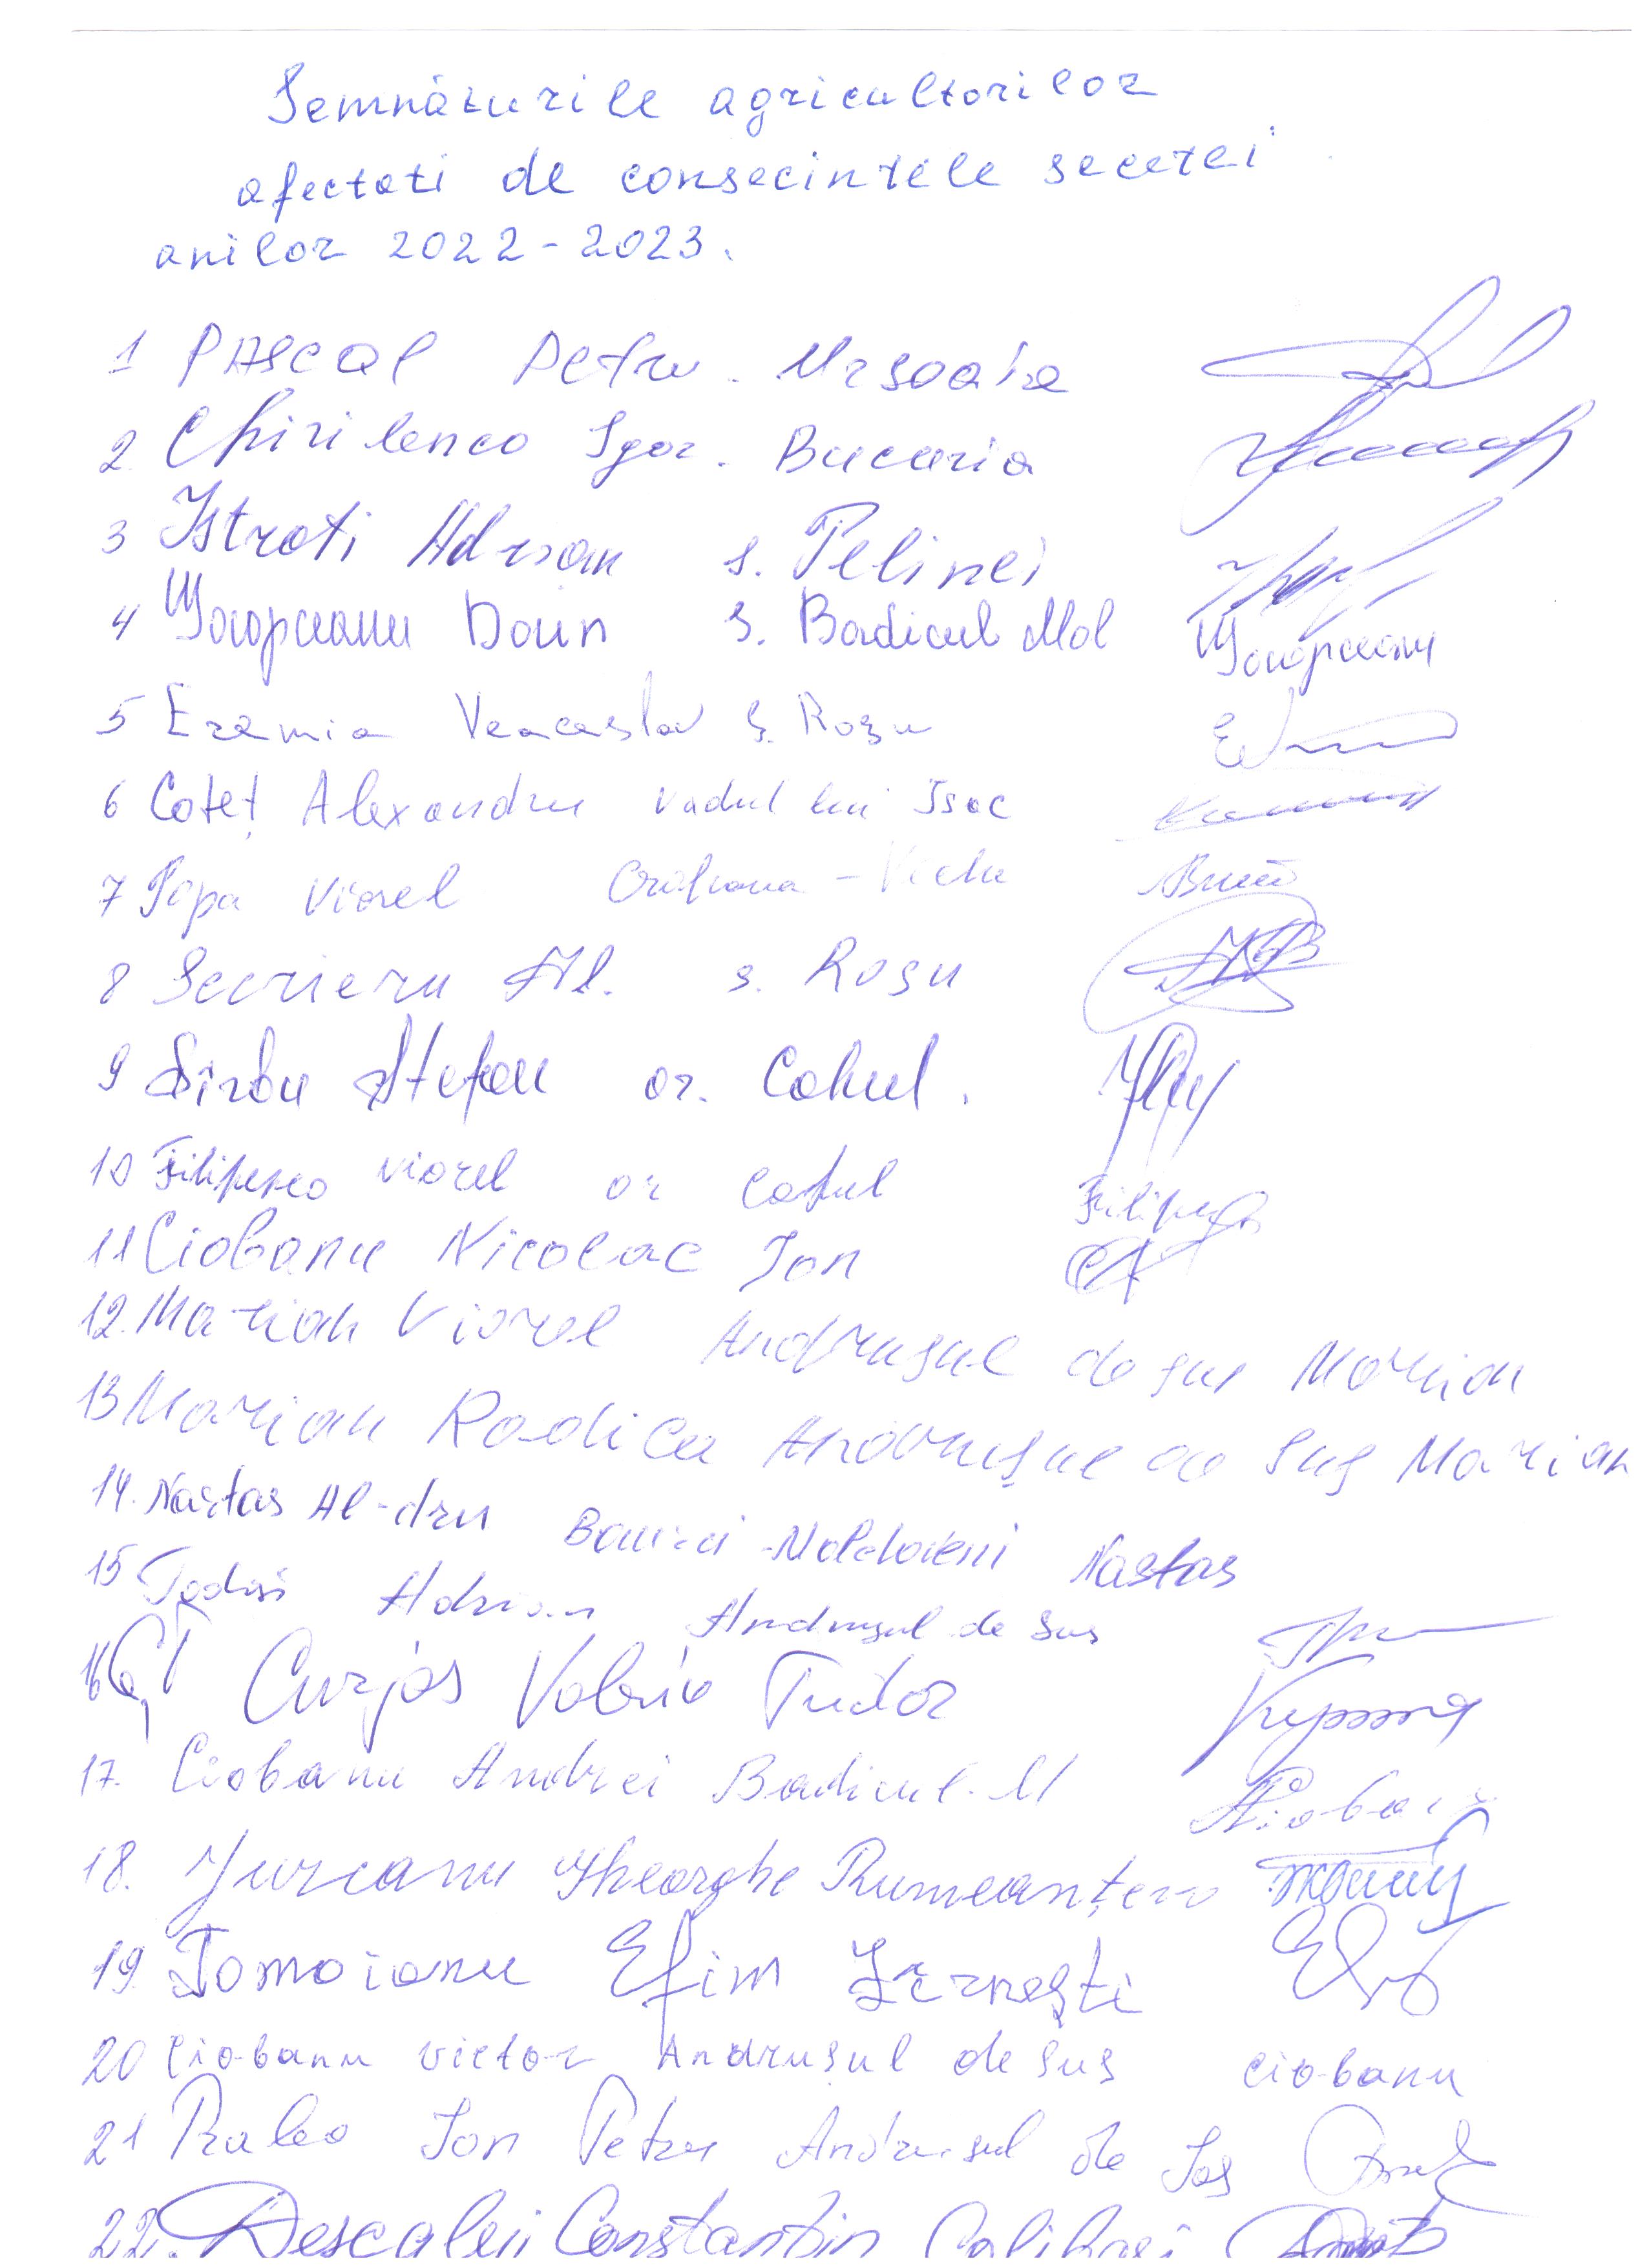 Semnăturile agricultorilor
afectati de consecintele secetei
anilor 2022-2023.
1 Pascal Petru. Ursoaia
2 Chirilenco Igor. Bucuria
3 Istrati Adrian s. Pelinei
4 Doin s. Badicul Mol
5 Eremia Veaceslav s. Roșu
6 Coteț Alexandru Vadul lui Isac
7 Popa Viorel - Veche
8 Scrieru Al. s. Roșu
9 Sîrbu Ștefan or. Cahul.
10 Filipesco Viorel or Cahul
11 Ciobanu Nicolae Ion
12. Marian Viorel Andrușul de sus Marian
13 Marian Rodica Andrușul de Sus Marian
14. Nastas Al-dru Moldoveni Nastas
15 Adrian Andrușul de Sus
16 Curjos Valeriu Tudor
17. Ciobanu Andrei Badicul. M
18. Jurcanu Gheorghe
19 Tomoianu Efim Zîrnești
20 Ciobanu Victor Andrușul de sus Ciobanu
21 Ion Petru Andrusul de Jos
22. Constantin